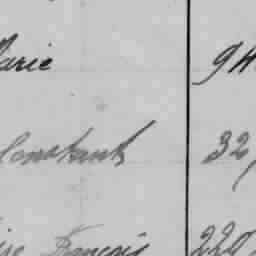 Marie 94
Constant 32,
François 220